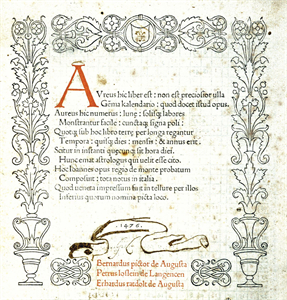 AUreus hic liber est: non est preciosior ulla
Gēma kalendario: quod docet istud opus.
Aureus hic numerus: lune: solisq; labores
Monstrantur facile: cunctaq; signa poli:
Quotq; sub hoc libro terre per longa regantur
Tempora: quisq; dies: mensis: & annus erit.
Scitur in instanti quecunq; sit hora diei.
Hunc emat astrologus qui velit esse cito.
Hoc Ioannes opus regio de monte probatum
Composuit: tota notus in italia.
Quod veneta impressum fuit in tellure per illos
Inferius quorum nomina picta loco.
.1476.
Bernardus pictor de Augusta
Petrus loslein de Langencen
Erhardus ratdolt de Augusta